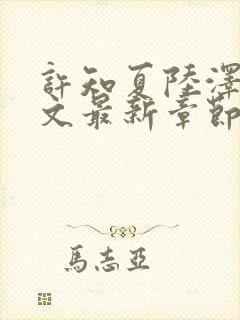 許知夏陸澤
文最新章節
馬志亞